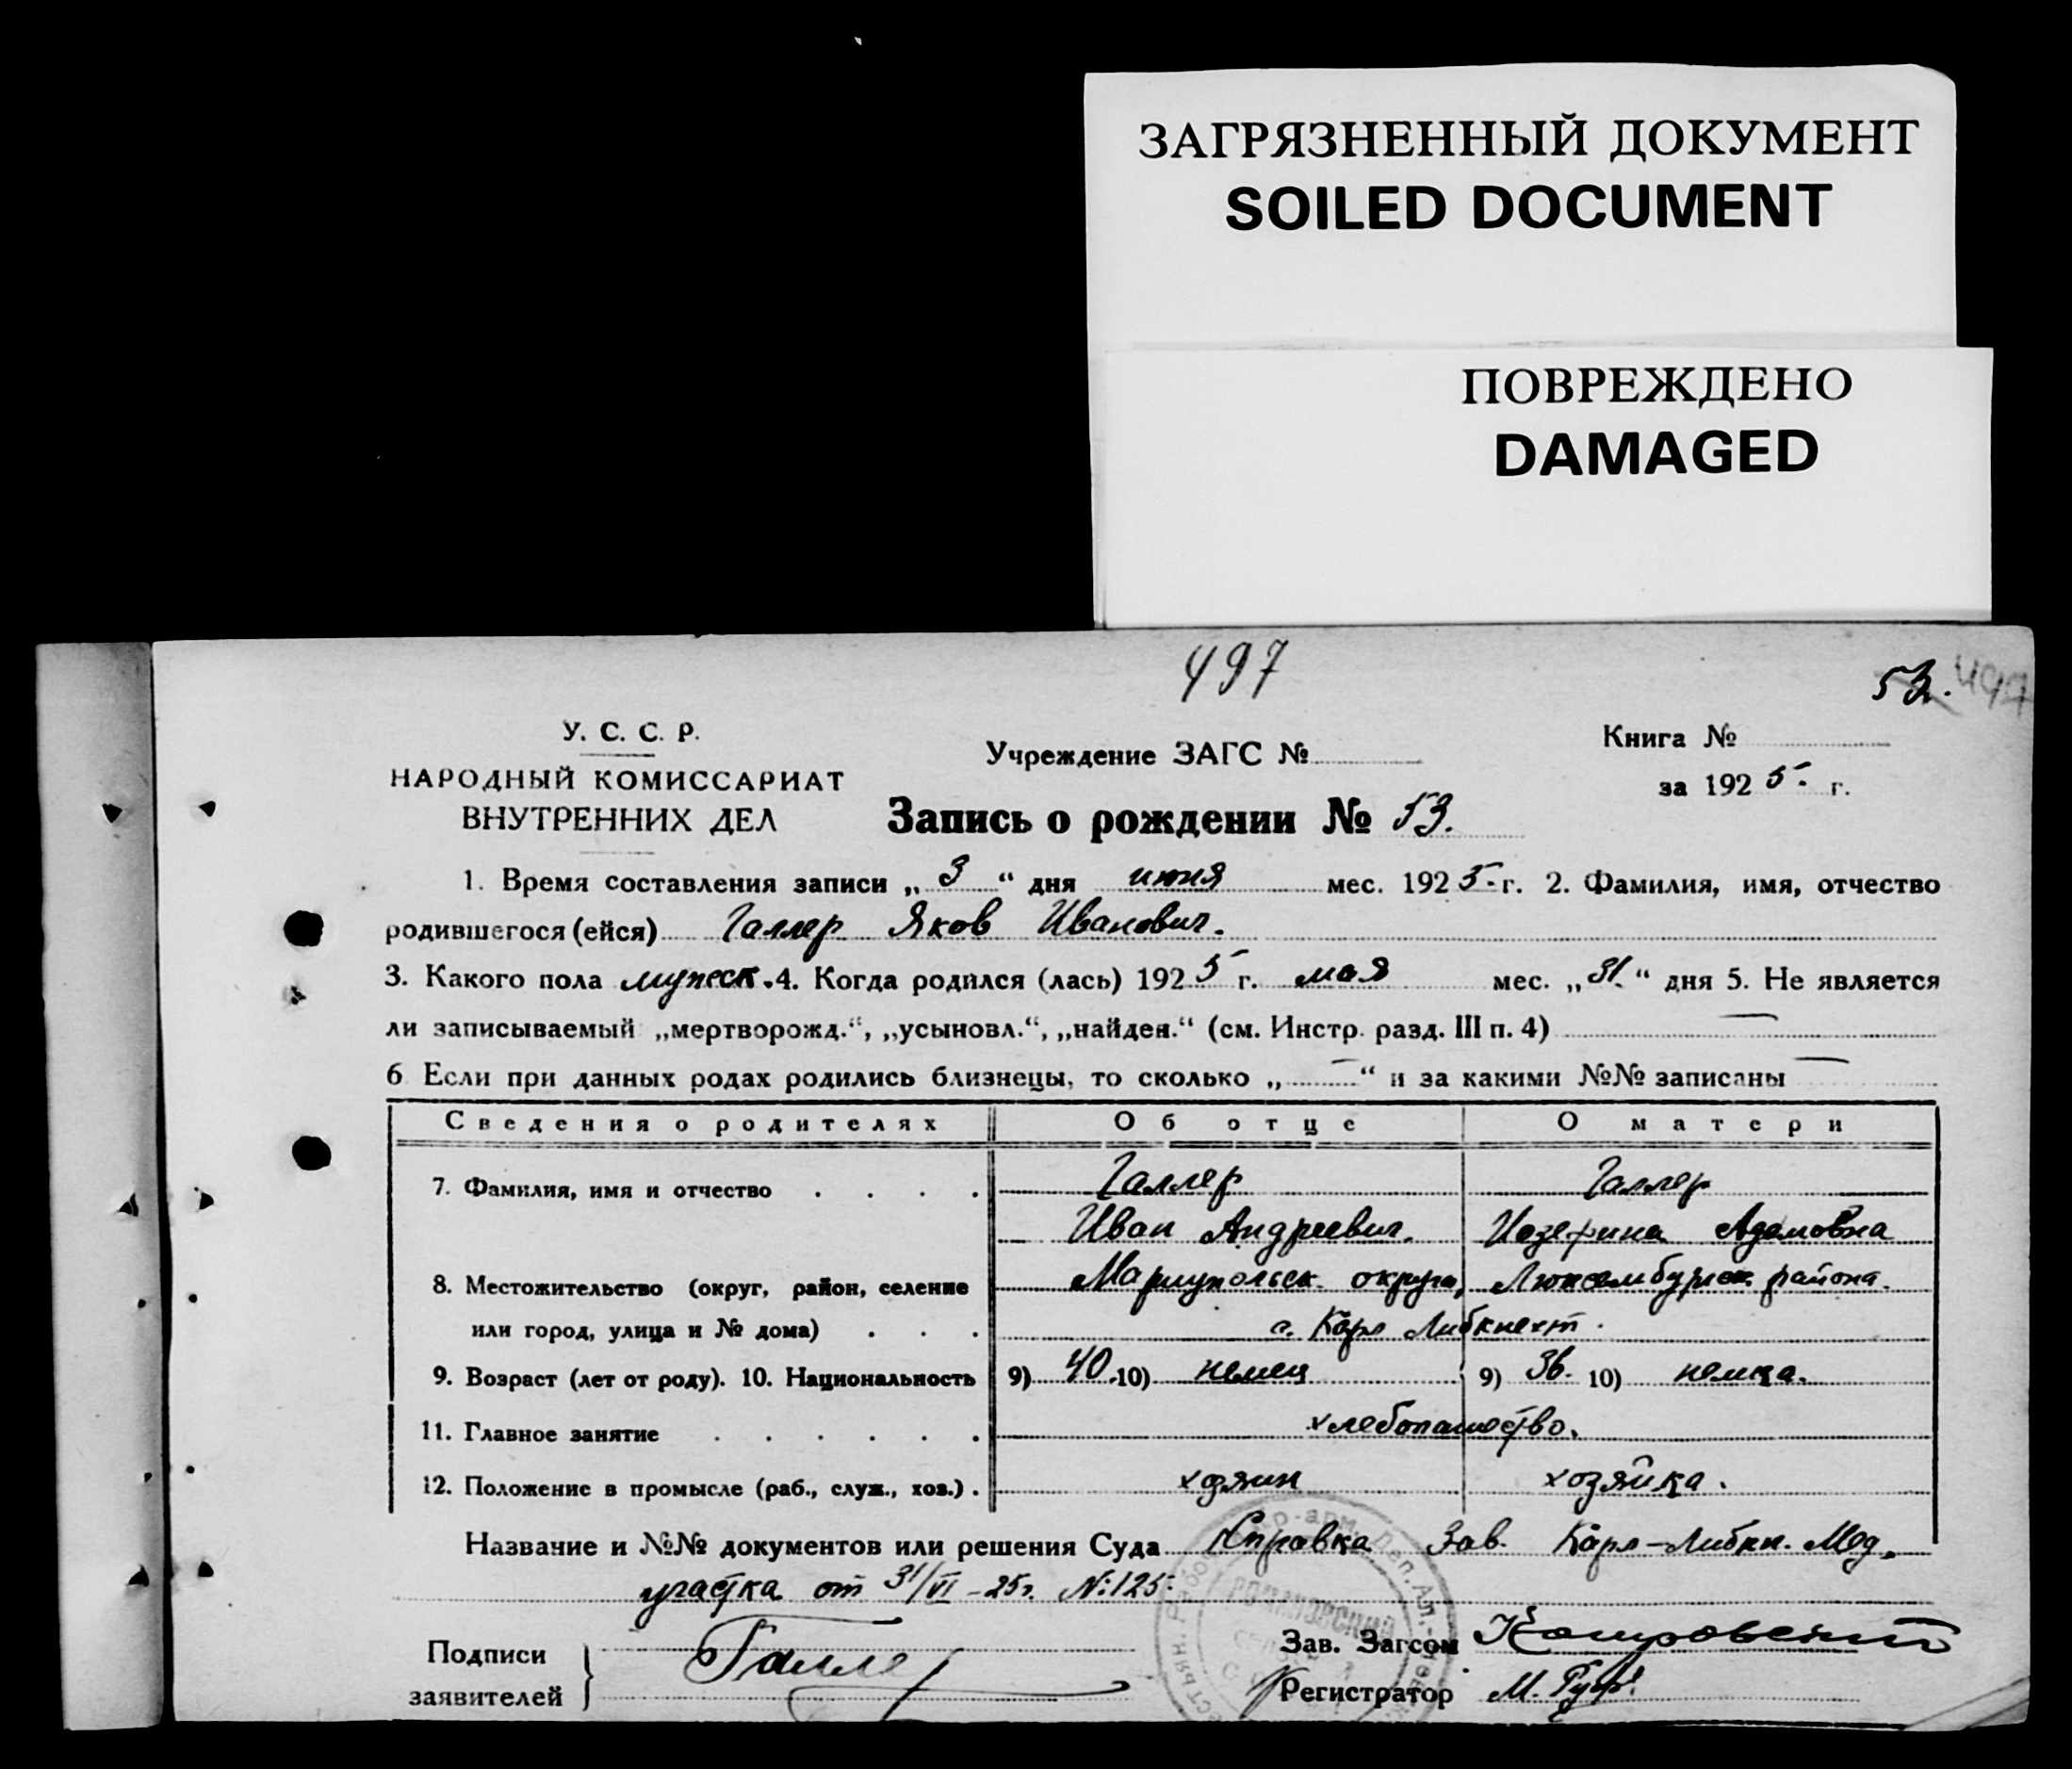 ЗАГРЯЗНЕННЫЙ ДОКУМЕНТ
SOILED DOCUMENT
ПОВРЕЖДЕНО
DAMAGED
497
53. 497
У. С. С. Р.
НАРОДНЫЙ КОМИССАРИАТ
ВНУТРЕННИХ ДЕЛ
Учреждение ЗАГС №
Книга №
за 1925. г.
Запись о рождении № 53.
1. Время составления записи „3“ дня июня мес. 1925. г. 2. Фамилия, имя, отчество
родившегося (ейся) Галлер Яков Иванович.
3. Какого пола мужеск. 4. Когда родился (лась) 1925 г. мая мес. „31.“ дня 5. Не является
ли записываемый „мертворожд.“, „усыновл.“, „найден.“ (см. Инстр. разд. III п. 4) —
6 Если при данных родах родились близнецы, то сколько „—“ и за какими №№ записаны —
Сведения о родителях Об отце О матери
7. Фамилия, имя и отчество . . . . Галлер Галлер
Иван Андреевич. Иозефина Адамовна
8. Местожительство (округ, район, селение Мариупольск. округа, Люксембургск. района.
или город, улица и № дома) . . . с. Карл Либкнехт.
9. Возраст (лет от роду). 10. Национальность 9) 40. 10) немец 9) 36. 10) немка.
11. Главное занятие . . . . . . хлебопашество.
12. Положение в промысле (раб., служ., хоз.) . хозяин хозяйка.
Название и №№ документов или решения Суда Справка Зав. Карл-Либкн. Мед.
участка от 31/VI-25г. №125.
Подписи
заявителей
Галлер
Зав. Загсом
Регистратор М.